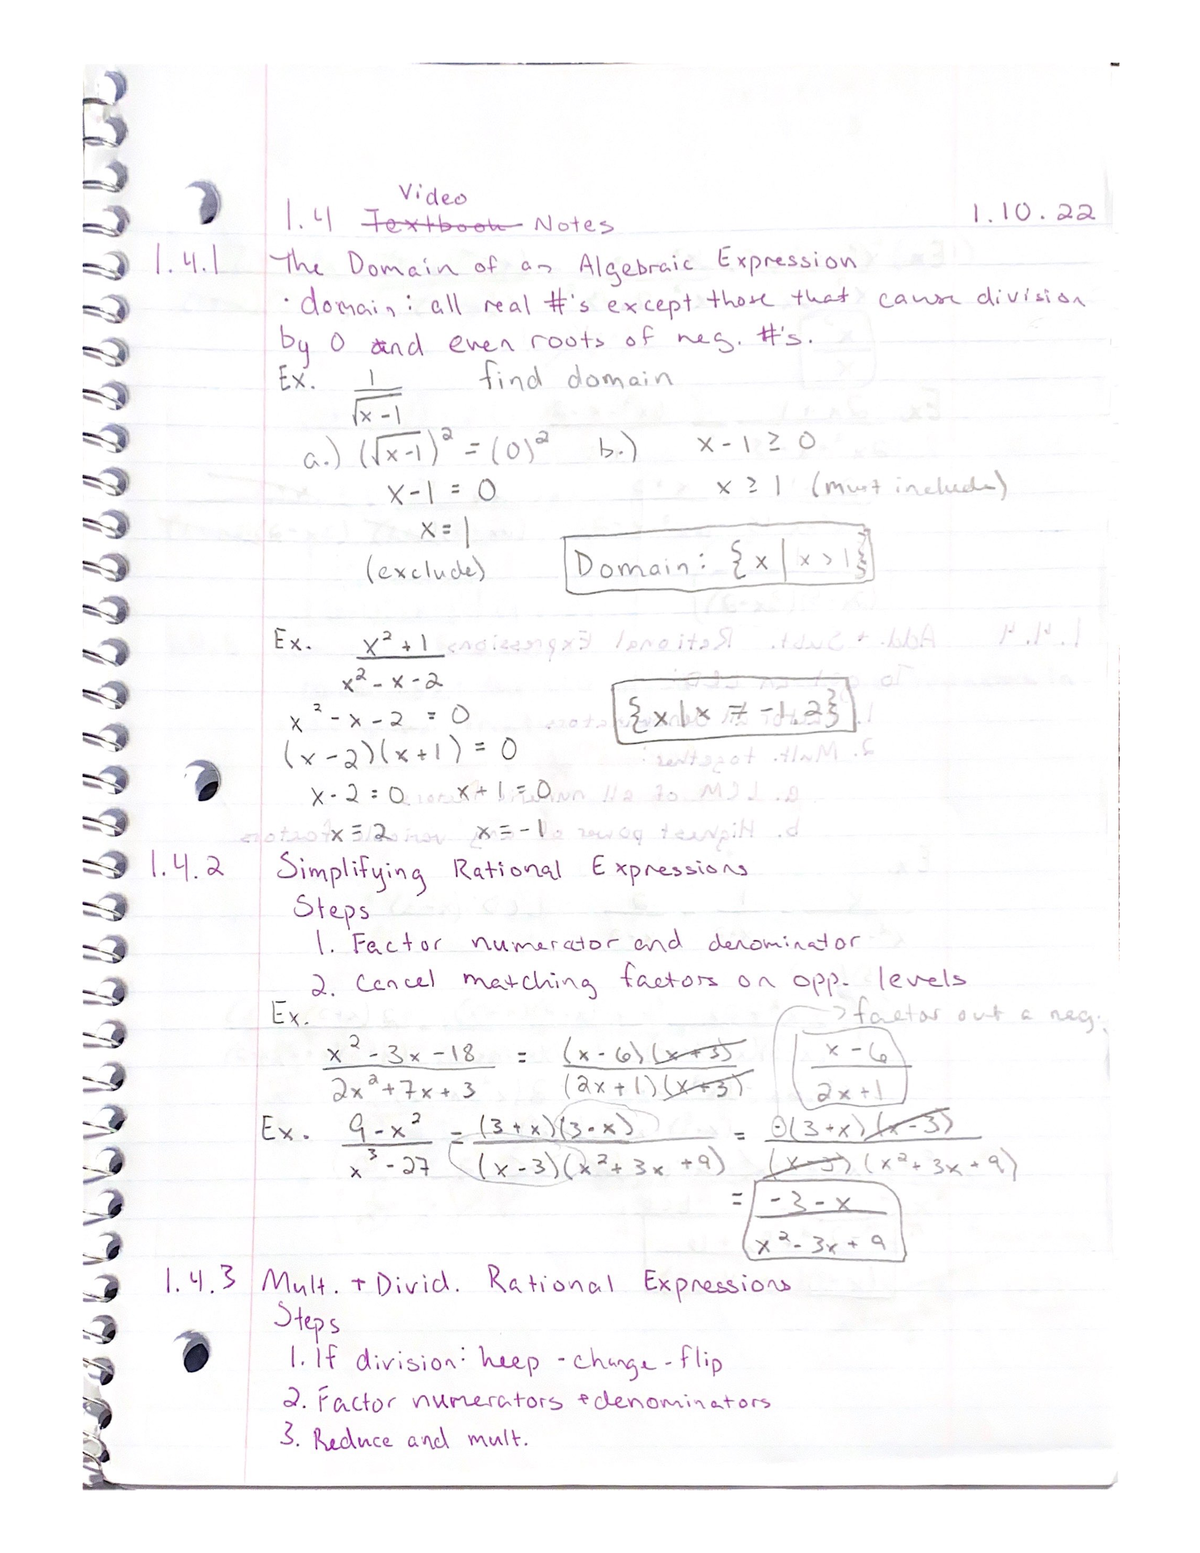 Video
1.4 Textbook Notes 1.10.22
1.4.1 The Domain of an Algebraic Expression
· domain: all real #'s except those that cause division
by 0 and even roots of neg. #'s.
Ex. 1/√x-1 find domain
a.) (√x-1)² = (0)² b.) x-1 ≥ 0
x-1 = 0 x ≥ 1 (must include)
x=1
(exclude) Domain: {x | x > 1}
Ex. x²+1 / x²-x-2
x²-x-2 = 0 {x | x ≠ -1, 2}
(x-2)(x+1) = 0
x-2=0 x+1=0
x=2 x=-1
1.4.2 Simplifying Rational Expressions
Steps
1. Factor numerator and denominator
2. Cancel matching factors on opp. levels
Ex. → factor out a neg.
x²-3x-18 / 2x²+7x+3 = (x-6)(x+3) / (2x+1)(x+3) x-6 / 2x+1
Ex. 9-x² / x³-27 = (3+x)(3-x) / (x-3)(x²+3x+9) = -(3+x)(x-3) / (x-3)(x²+3x+9)
= -3-x / x²-3x+9
1.4.3 Mult. + Divid. Rational Expressions
Steps
1. If division: keep-change-flip
2. Factor numerators + denominators
3. Reduce and mult.